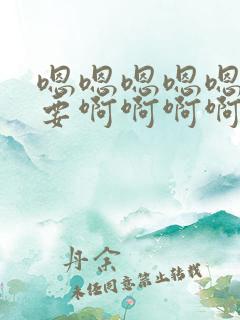 嗯嗯嗯嗯嗯
要啊啊啊啊
丹余
未经同意禁止转载